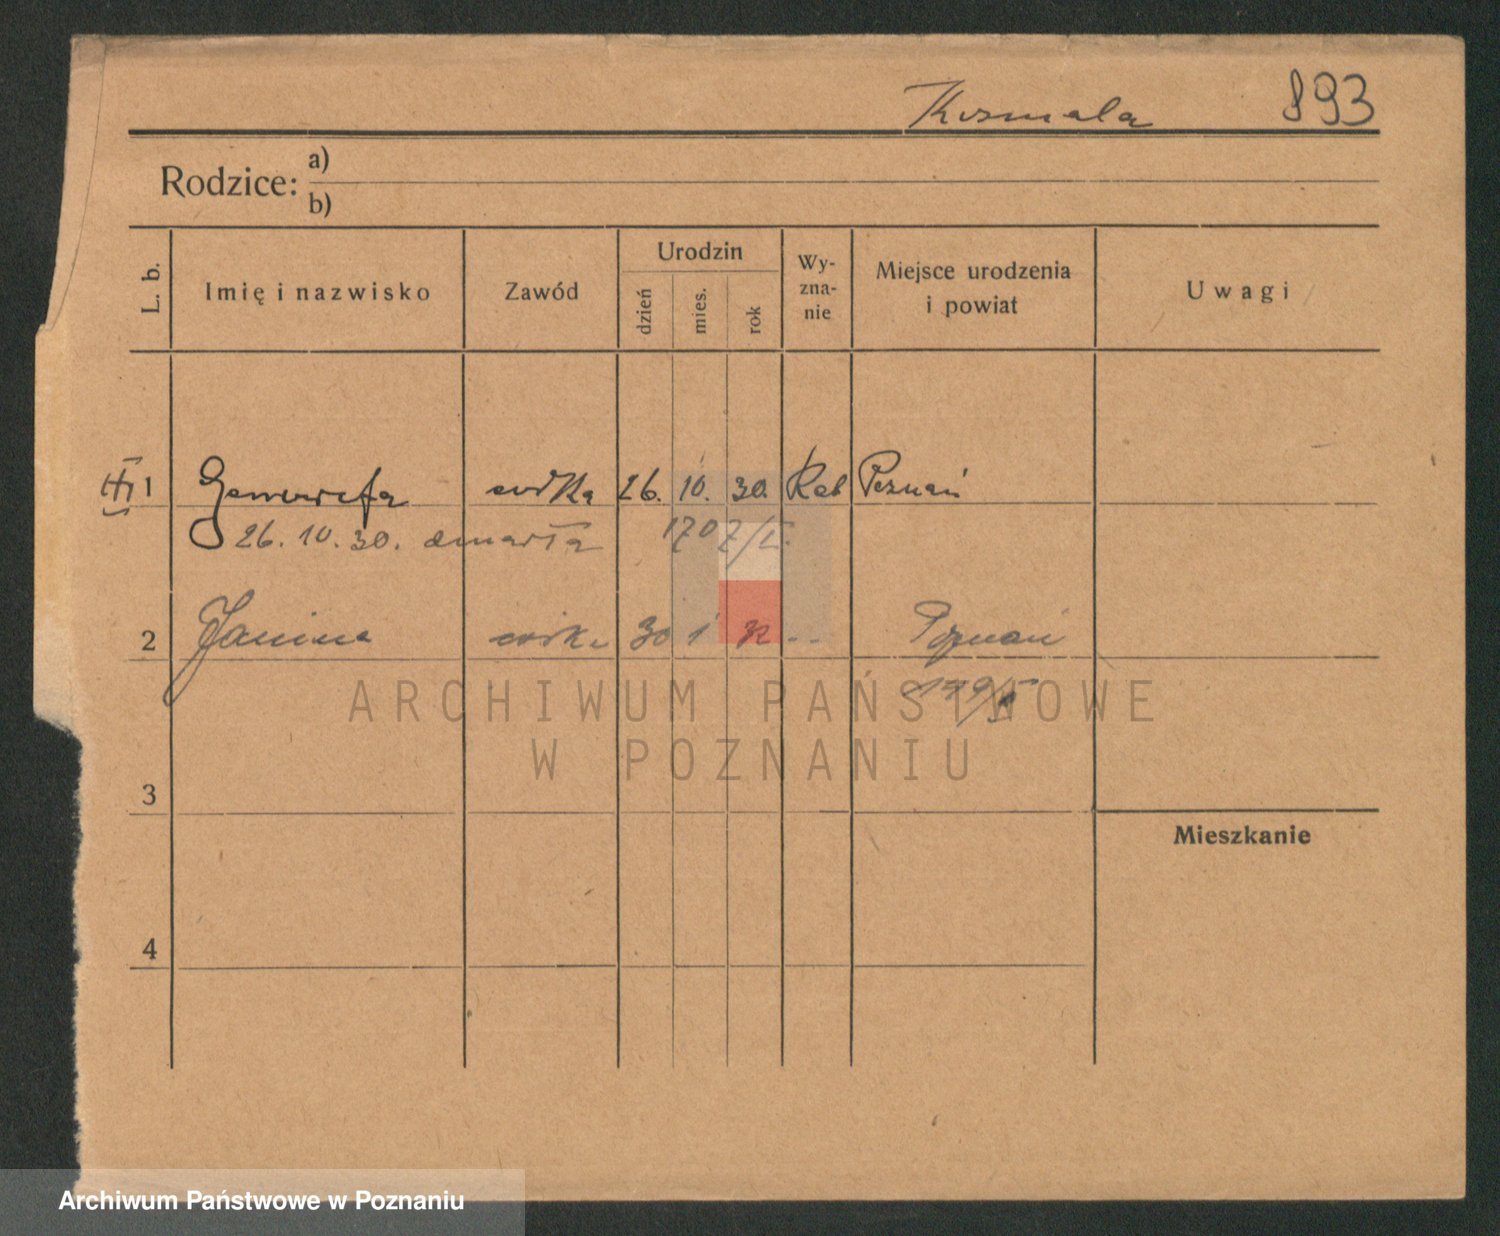 Kosmala 893
Rodzice: a)
b)
L. b. Imię i nazwisko Zawód Urodzin dzień mies. rok Wy-zna-nie Miejsce urodzenia i powiat Uwagi
1 Genowefa córka 26. 10. 30. Kat Poznań
26. 10. 30. zmarła 1707/I.
2 Janina córka 30 1 32 - - Poznań
ARCHIWUM PAŃSTWOWE
W POZNANIU
3
Mieszkanie
4
Archiwum Państwowe w Poznaniu